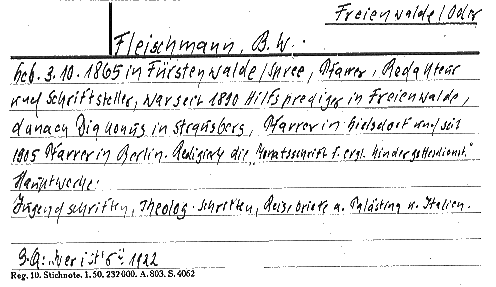 Freienwalde/Oder
Fleischmann, B.W.:
Geb. 3.10.1865 in Fürstenwalde/Spree, Pfarrer, Redakteur
und Schriftsteller, war seit 1890 Hilfsprediger in Freienwalde,
danach Diakonus in Strausberg, Pfarrer in Gielsdorf und seit
1905 Pfarrer in Berlin. Redigierte die "Monatsschrift f. evgl. Kindergottesdienst."
Hauptwerke:
Jugendschriften, Theolog. Schriften, Reisebriefe a. Palästina u. Italien.
Qu: Wer ist's 1922
Reg. 10. Stichnote. 1. 50. 232000. A. 803. S. 4062